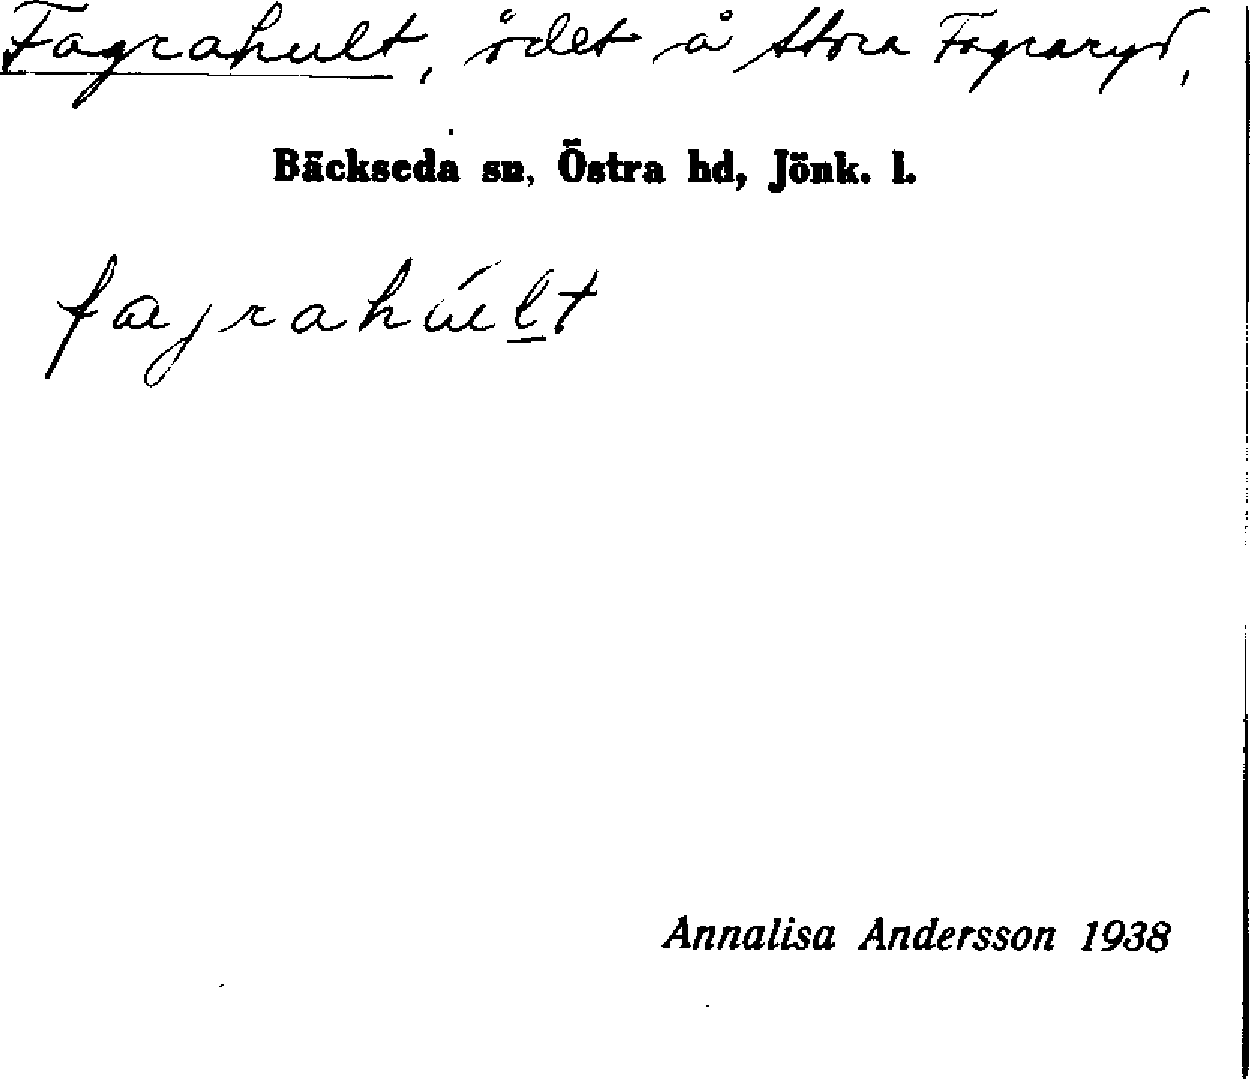 Fagrahult, ödet å Stora Fagraryd,
Bäckseda sn, Östra hd, Jönk. l.
fajrahúlt
Annalisa Andersson 1938